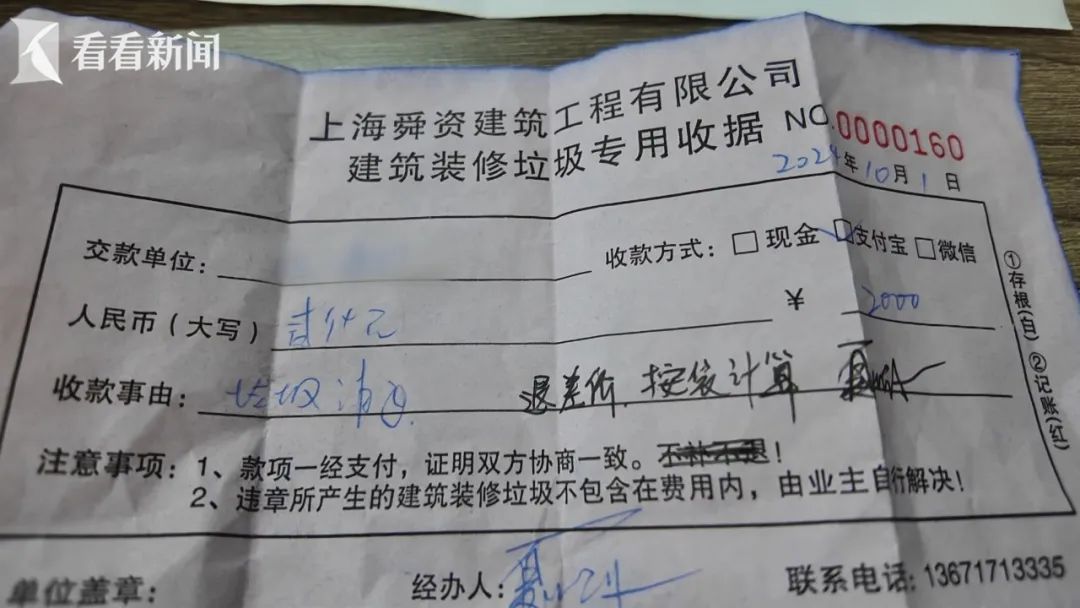 看看新闻
上海舜资建筑工程有限公司
建筑装修垃圾专用收据 NO.0000160
2024年10月1日
交款单位： 收款方式：□现金 □支付宝 □微信
人民币（大写）贰仟元 ¥ 2000
收款事由：垃圾清运 退差价.按袋计算
注意事项：1、款项一经支付，证明双方协商一致。不补不退！
2、违章所产生的建筑装修垃圾不包含在费用内，由业主自行解决！
单位盖章： 经办人： 联系电话：13671713335
①存根(白) ②记账(红)